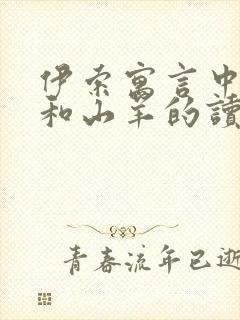 伊索寓言中
和山羊的讀
青春流年已逝